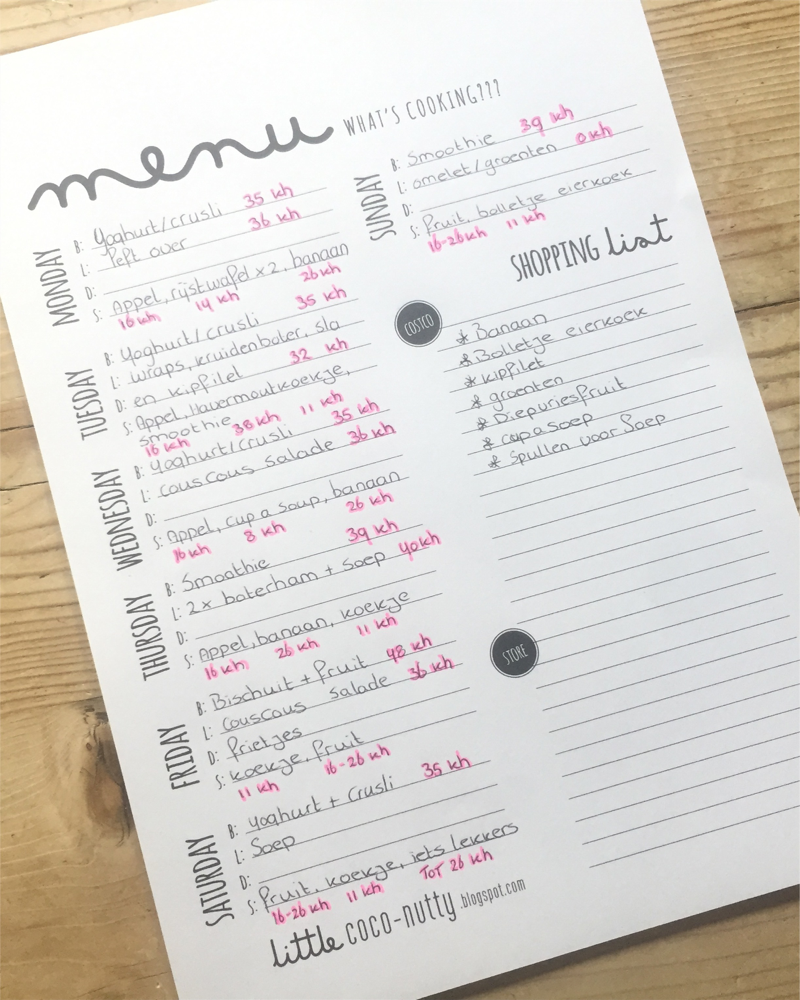 menu WHAT'S COOKING???
MONDAY
B: Yoghurt/crusli 35 kh
L: left over 36 kh
D:
S: Appel, rijstwafel x 2, banaan
16 kh 14 kh 26 kh
TUESDAY
B: Yoghurt/crusli 35 kh
L: wraps, kruidenboter, sla
D: en kipfilet 32 kh
S: Appel, Havermoutkoekje,
smoothie 11 kh
16 kh 38 kh
WEDNESDAY
B: Yoghurt/crusli 35 kh
L: couscous salade 36 kh
D:
S: Appel, cup a soup, banaan
16 kh 8 kh 26 kh
THURSDAY
B: Smoothie 39 kh
L: 2x boterham + soep 40 kh
D:
S: Appel, banaan, koekje
16 kh 26 kh 11 kh
FRIDAY
B: Bischuit + fruit 48 kh
L: couscous salade 36 kh
D: frietjes
S: koekje, fruit
11 kh 16-26 kh
SATURDAY
B: yoghurt + crusli 35 kh
L: Soep
D:
S: fruit, koekje, iets lekkers
16-26 kh 11 kh TOT 26 kh
SUNDAY
B: Smoothie 39 kh
L: omelet/groenten 0 kh
D:
S: fruit, bolletje eierkoek
16-26 kh 11 kh
SHOPPING list
COSTCO
* Banaan
* Bolletje eierkoek
* kipfilet
* groenten
* Diepvriesfruit
* cup a soep
* Spullen voor Soep
STORE
little COCO-NUTTY .blogspot.com